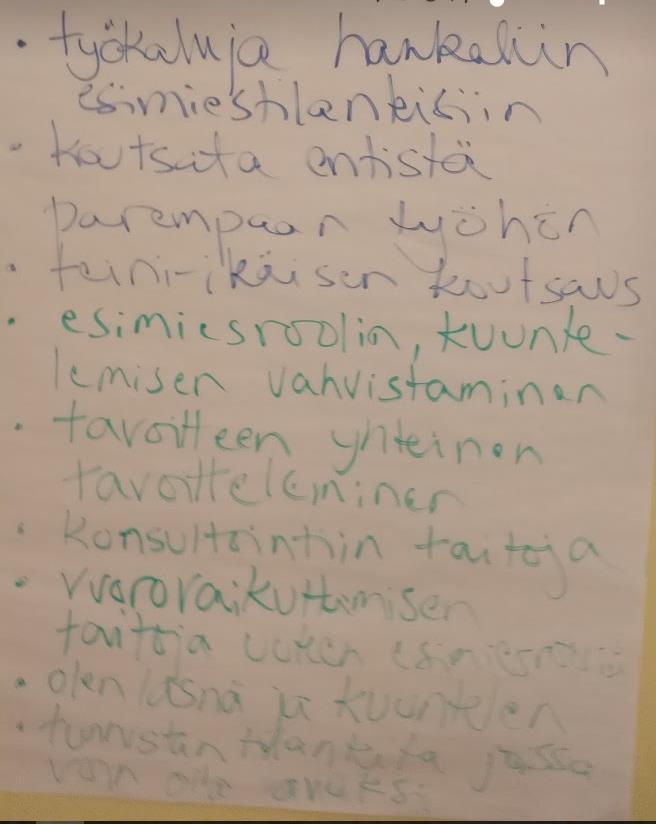 • työkaluja hankaliin
esimiestilanteisiin
• koutsata entistä
parempaan työhön
• teini-ikäisen koutsaus
• esimiesroolin, kuunte-
lemisen vahvistaminen
• tavoitteen yhteinen
tavoitteleminen
• konsultointiin taitoja
• vuorovaikuttamisen
taitoja uuteen esimiesrooliin
• olen läsnä ja kuuntelen
• tunnistan tilanteita jossa
voin olla avuksi